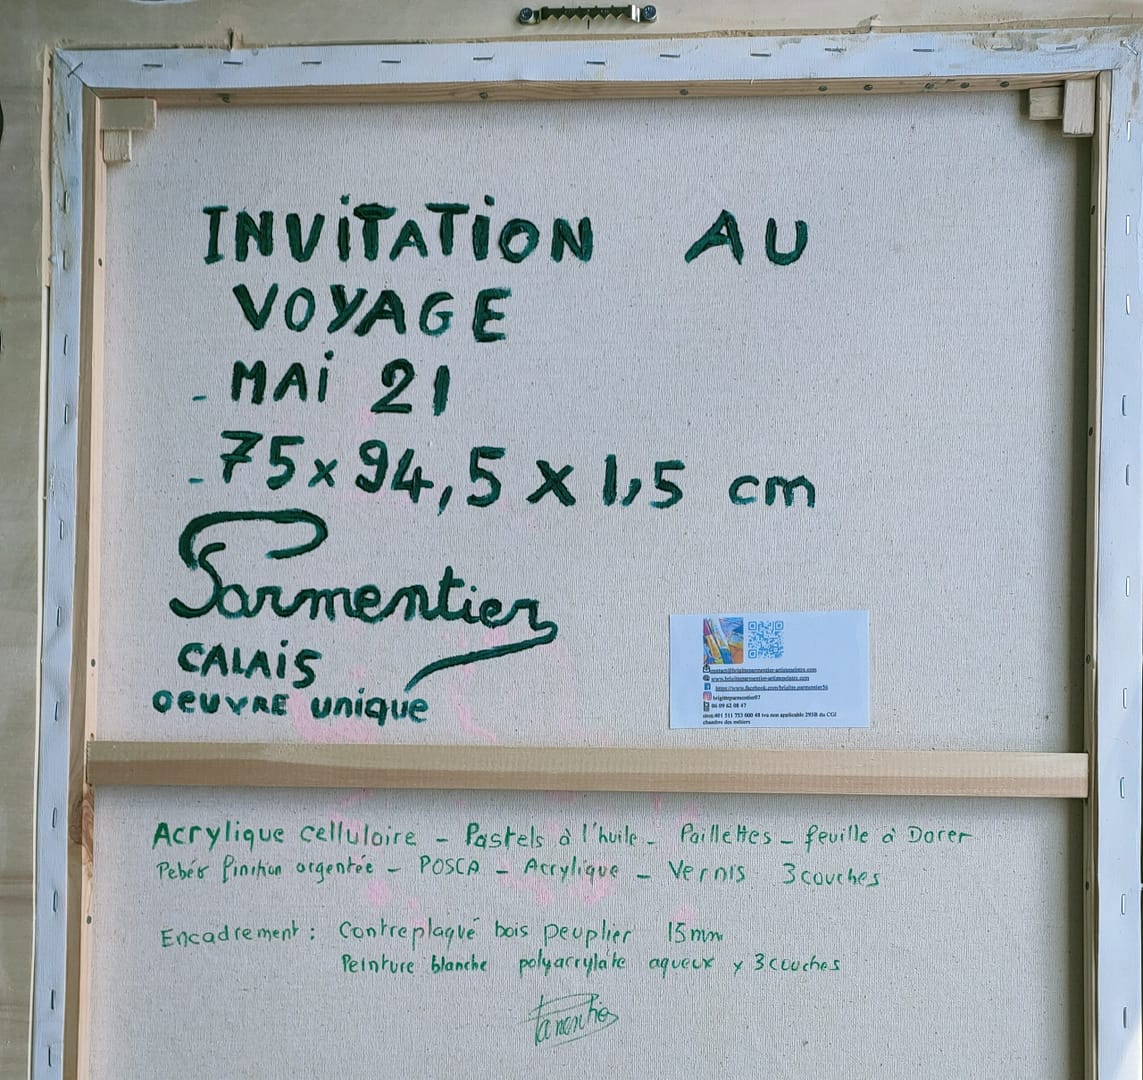 INVITATION AU
VOYAGE
- MAI 21
- 75 x 94,5 x 1,5 cm
Parmentier
CALAIS
OEUVRE unique
contact@brigitteparmentier-artistepeintre.com
www.brigitteparmentier-artistepeintre.com
https://www.facebook.com/brigitte.parmentier56
brigitteparmentier07
06 09 62 08 47
siret:401 511 753 000 48 tva non applicable 293B du CGI
chambre des métiers
Acrylique celluloire - Pastels à l'huile - Paillettes - feuille à Dorer
Pebéo finition argentée - POSCA - Acrylique - Vernis 3 couches
Encadrement : Contreplaqué bois peuplier 15mm
Peinture blanche polyacrylate aqueux x 3 couches
Parmentier